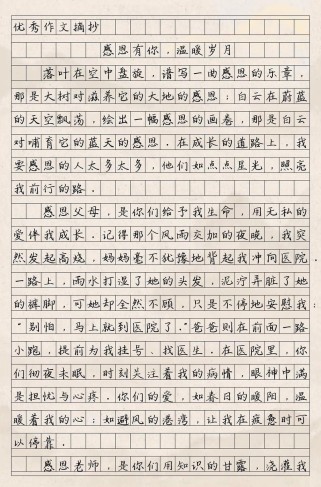 优秀作文摘抄
感恩有你，温暖岁月
落叶在空中盘旋，谱写一曲感恩的乐章，
那是大树对滋养它的大地的感恩；白云在蔚蓝
的天空飘荡，绘出一幅感恩的画卷，那是白云
对哺育它的蓝天的感恩．在成长的道路上，我
要感恩的人太多太多，他们如点点星光，照亮
我前行的路．
感恩父母，是你们给予我生命，用无私的
爱伴我成长．记得那个风雨交加的夜晚，我突
然发起高烧，妈妈毫不犹豫地背起我冲向医院．
一路上，雨水打湿了她的头发，泥泞弄脏了她
的裤脚，可她却全然不顾，只是不停地安慰我：
“别怕，马上就到医院了．”爸爸则在前面一路
小跑，提前为我挂号、找医生．在医院里，你
们彻夜未眠，时刻关注着我的病情，眼神中满
是担忧与心疼．你们的爱，如春日的暖阳，温
暖着我的心；如避风的港湾，让我在疲惫时可
以停靠．
感恩老师，是你们用知识的甘露，浇灌我